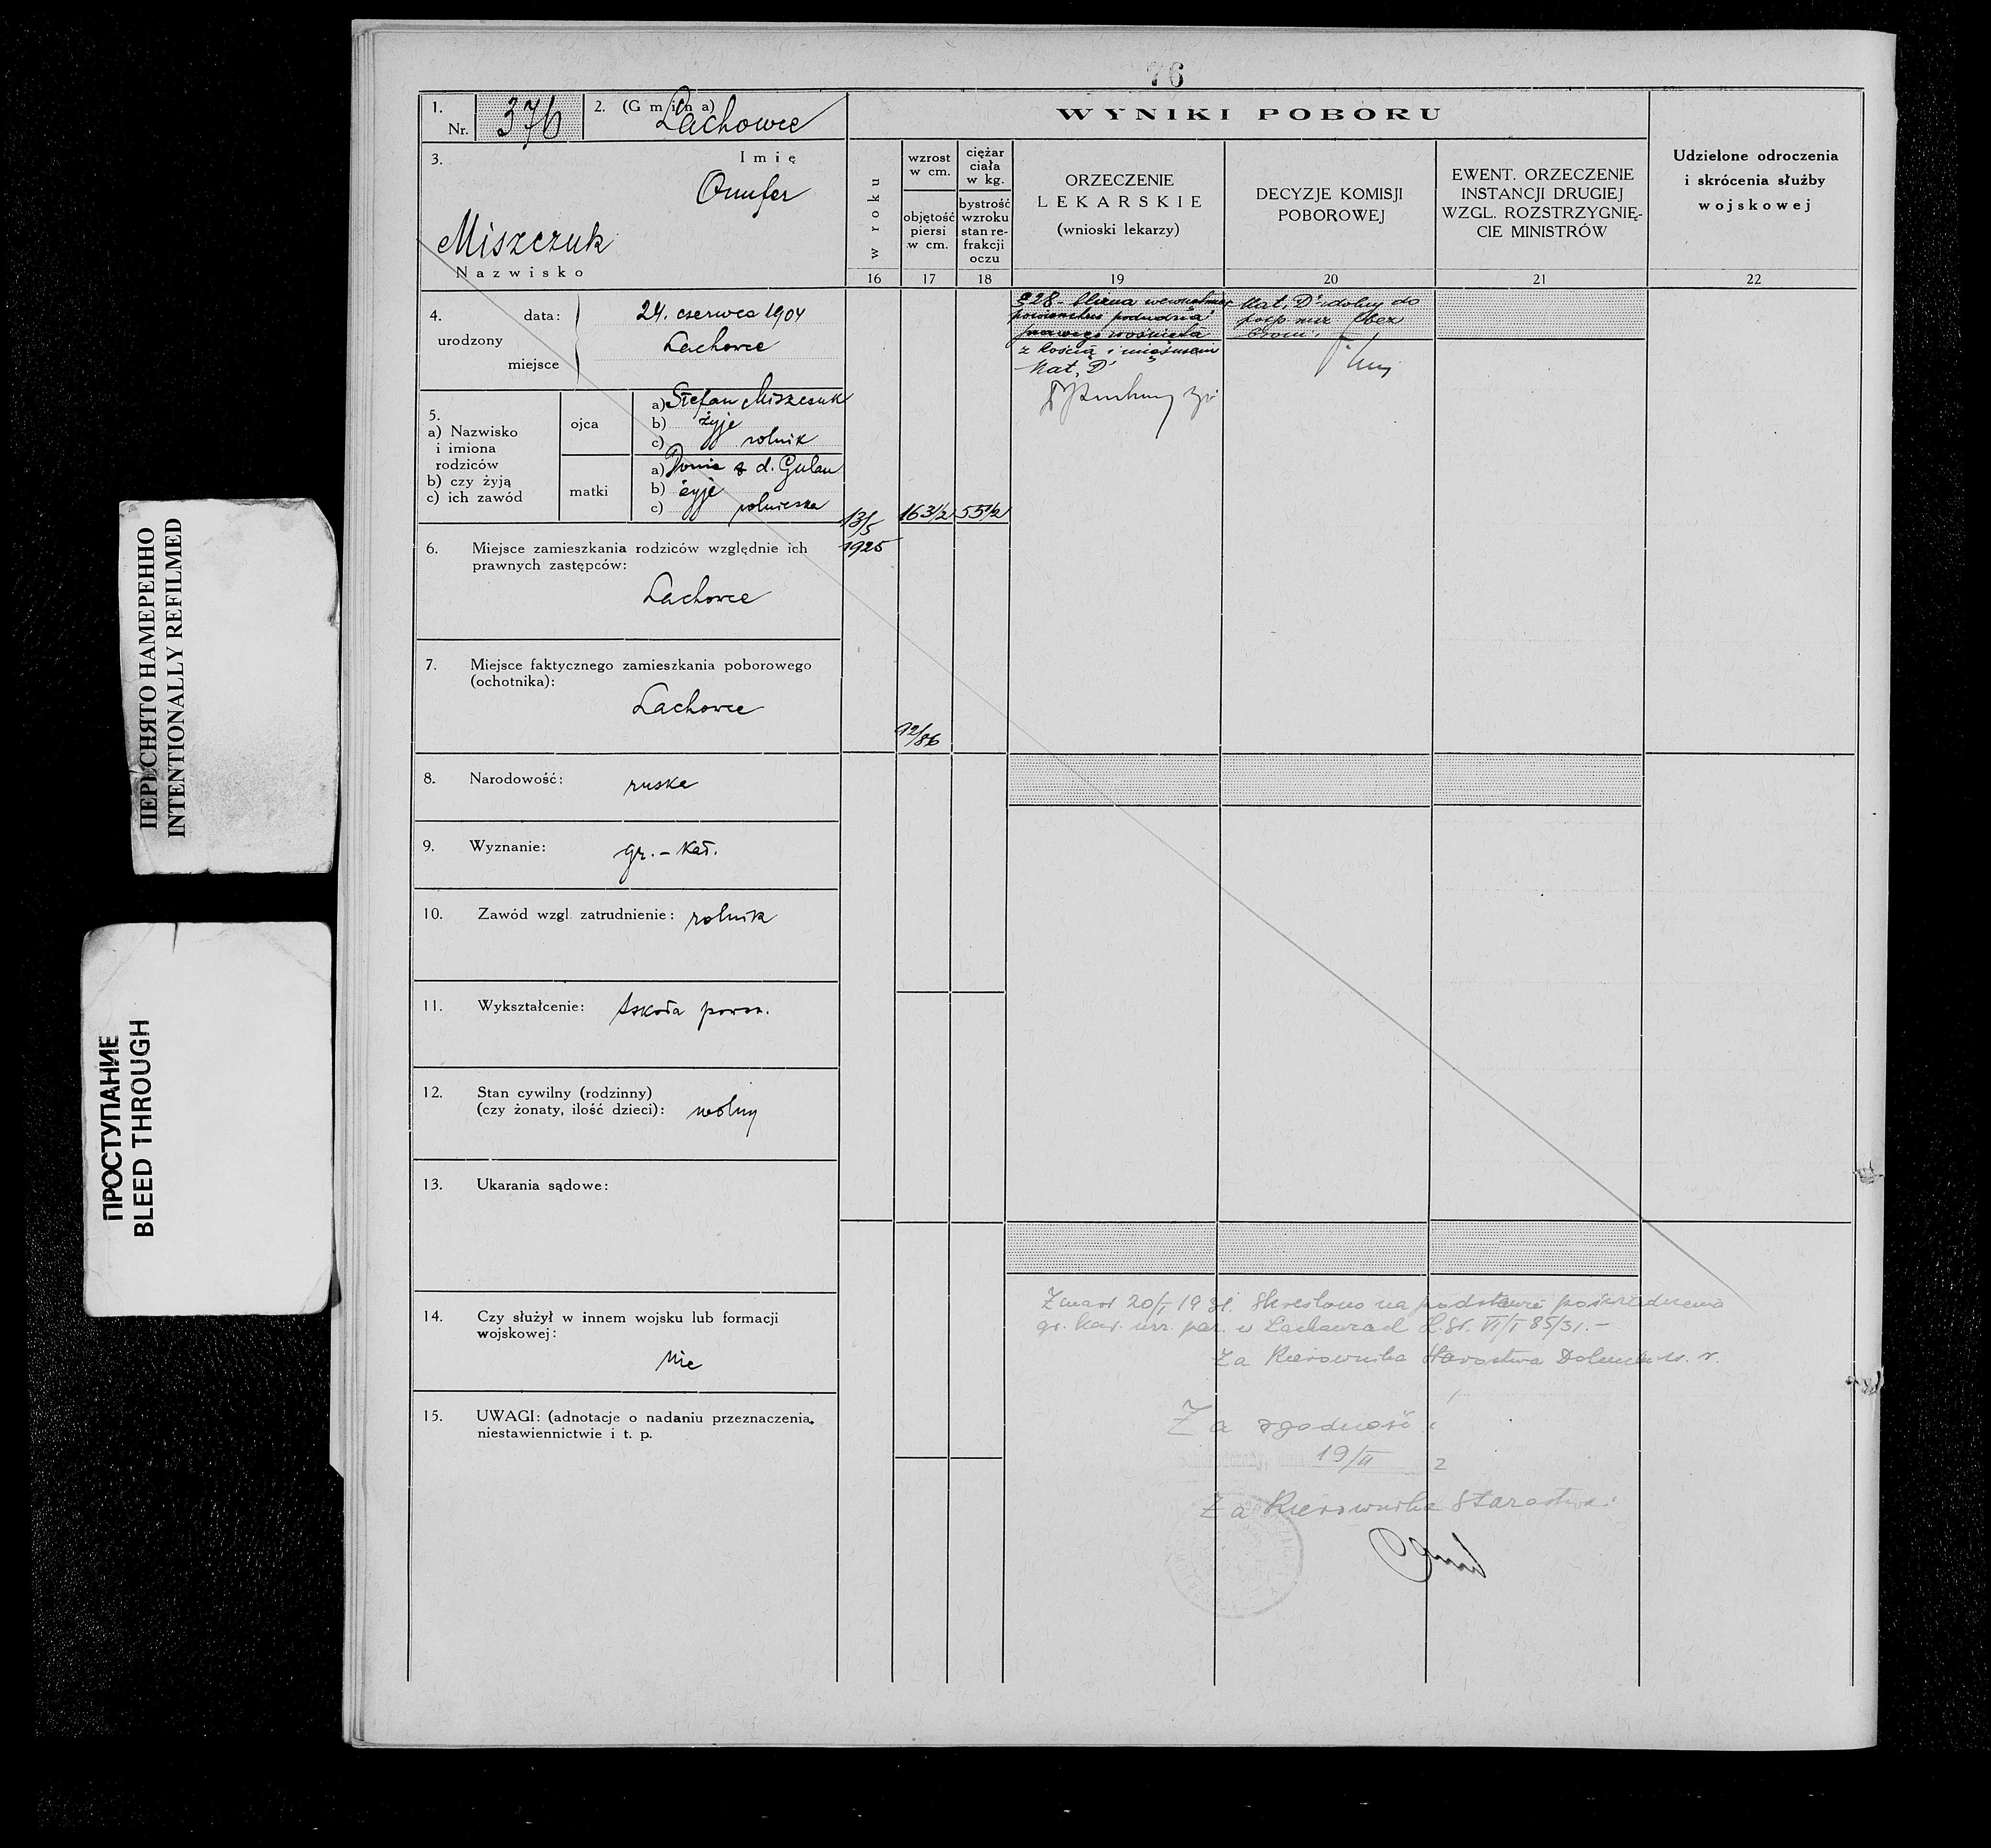 76
1. Nr. 376
2. (Gmina) Lachowce
WYNIKI POBORU
Udzielone odroczenia
i skrócenia służby
wojskowej
3. Imię
Onufer
Miszczuk
Nazwisko
w roku
wzrost
w cm.
objętość
piersi
w cm.
ciężar
ciała
w kg.
bystrość
wzroku
stan re-
frakcji
oczu
ORZECZENIE
LEKARSKIE
(wnioski lekarzy)
DECYZJE KOMISJI
POBOROWEJ
EWENT. ORZECZENIE
INSTANCJI DRUGIEJ
WZGL. ROZSTRZYGNIĘ-
CIE MINISTRÓW
16 17 18 19 20 21 22
4. data: 24. czerwca 1904
urodzony
miejsce Lachowce
5.
a) Nazwisko
i imiona
rodziców
b) czy żyją
c) ich zawód
ojca
a) Stefan Miszczuk
b) żyje
c) rolnik
matki
a) z d. Gulan
b) żyje
c) rolniczka
13/5
1925
163½
55½
92/86
§ 28 - blizna
z kością i mięśniem
Kat. "D"
Kat. "D" zdolny do
posp. rusz. bez
broni.
6. Miejsce zamieszkania rodziców względnie ich
prawnych zastępców:
Lachowce
7. Miejsce faktycznego zamieszkania poborowego
(ochotnika):
Lachowce
8. Narodowość: ruska
9. Wyznanie: gr.-kat.
10. Zawód wzgl. zatrudnienie: rolnik
11. Wykształcenie: szkoła powsz.
12. Stan cywilny (rodzinny)
(czy żonaty, ilość dzieci): wolny
13. Ukarania sądowe:
14. Czy służył w innem wojsku lub formacji
wojskowej:
nie
15. UWAGI: (adnotacje o nadaniu przeznaczenia,
niestawiennictwie i t. p.
Zmarł 20/I 1931. Skreślono na podstawie poświadczenia
gr. kat. urz. par. w L. St. VI/I 85/31.-
Za Kierownika Starostwa w. r.
Za zgodność:
19/II 2
Za Kierownika Starostwa:
ПЕРЕСНЯТО НАМЕРЕННО
INTENTIONALLY REFILMED
ПРОСТУПАНИЕ
BLEED THROUGH